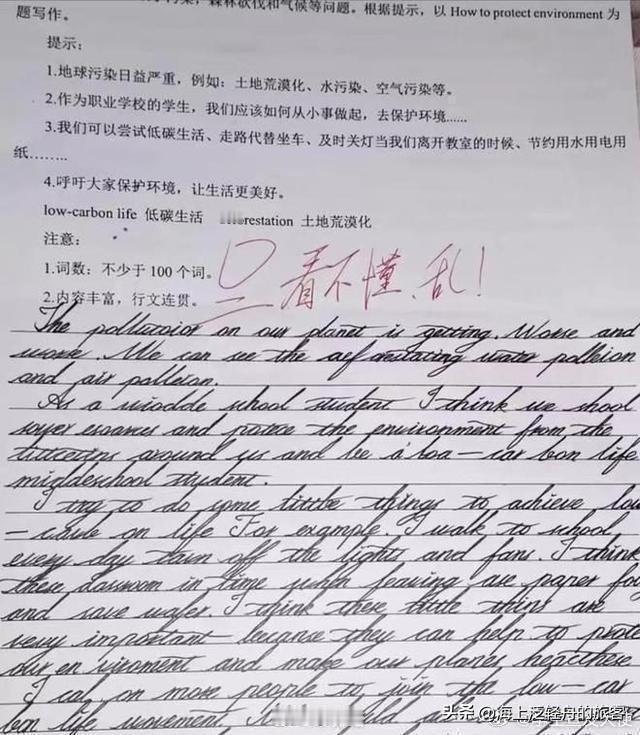 污染，森林砍伐和气候等问题。根据提示，以 How to protect environment 为
题写作。
提示：
1.地球污染日益严重，例如：土地荒漠化、水污染、空气污染等。
2.作为职业学校的学生，我们应该如何从小事做起，去保护环境......
3.我们可以尝试低碳生活、走路代替坐车、及时关灯当我们离开教室的时候、节约用水用电用
纸……..
4.呼吁大家保护环境，让生活更美好。
low-carbon life 低碳生活 restation 土地荒漠化
注意：
1.词数：不少于 100 个词。
2.内容丰富，行文连贯。
0 看不懂、乱！
The pollutoior on our planet is getting. Worse and
worse. We can see the water polleion
and air polleion.
As a widde whool student I think we shool
and protce the environment from the
around us and be a loa - car bon life
middeschool student.
I try to do some little things to achieve low
- caub on life For example. I walk to whool
every day turn off the lights and fans. I think
these dassroom in time when leaving are paper for
and save wafer. I think these little thins are
very important because they can help to prote
our en viroment and make our planes
I cal on more people to join the low - car
bon life movement.
头条 @海上泛轻舟的旅客